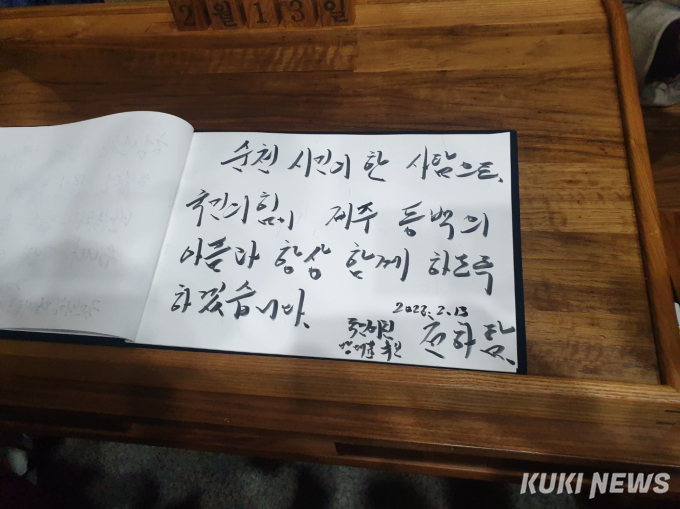 2월13일
순천 시민의 한 사람으로,
국민의힘이 제주 동백의
아픔과 항상 함께 하도록
하겠습니다.
2023.2.13
천하람.
KUKI NEWS